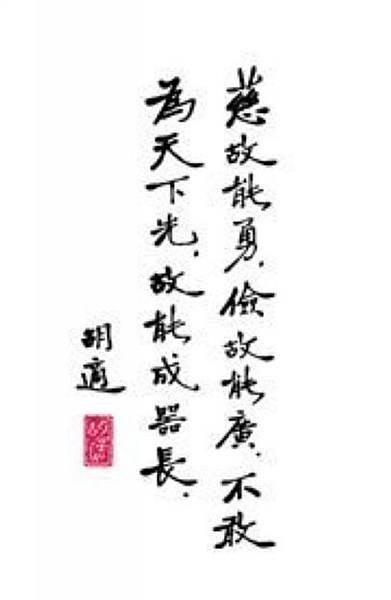 慈故能勇.儉故能廣.不敢
為天下先.故能成器長.
胡適